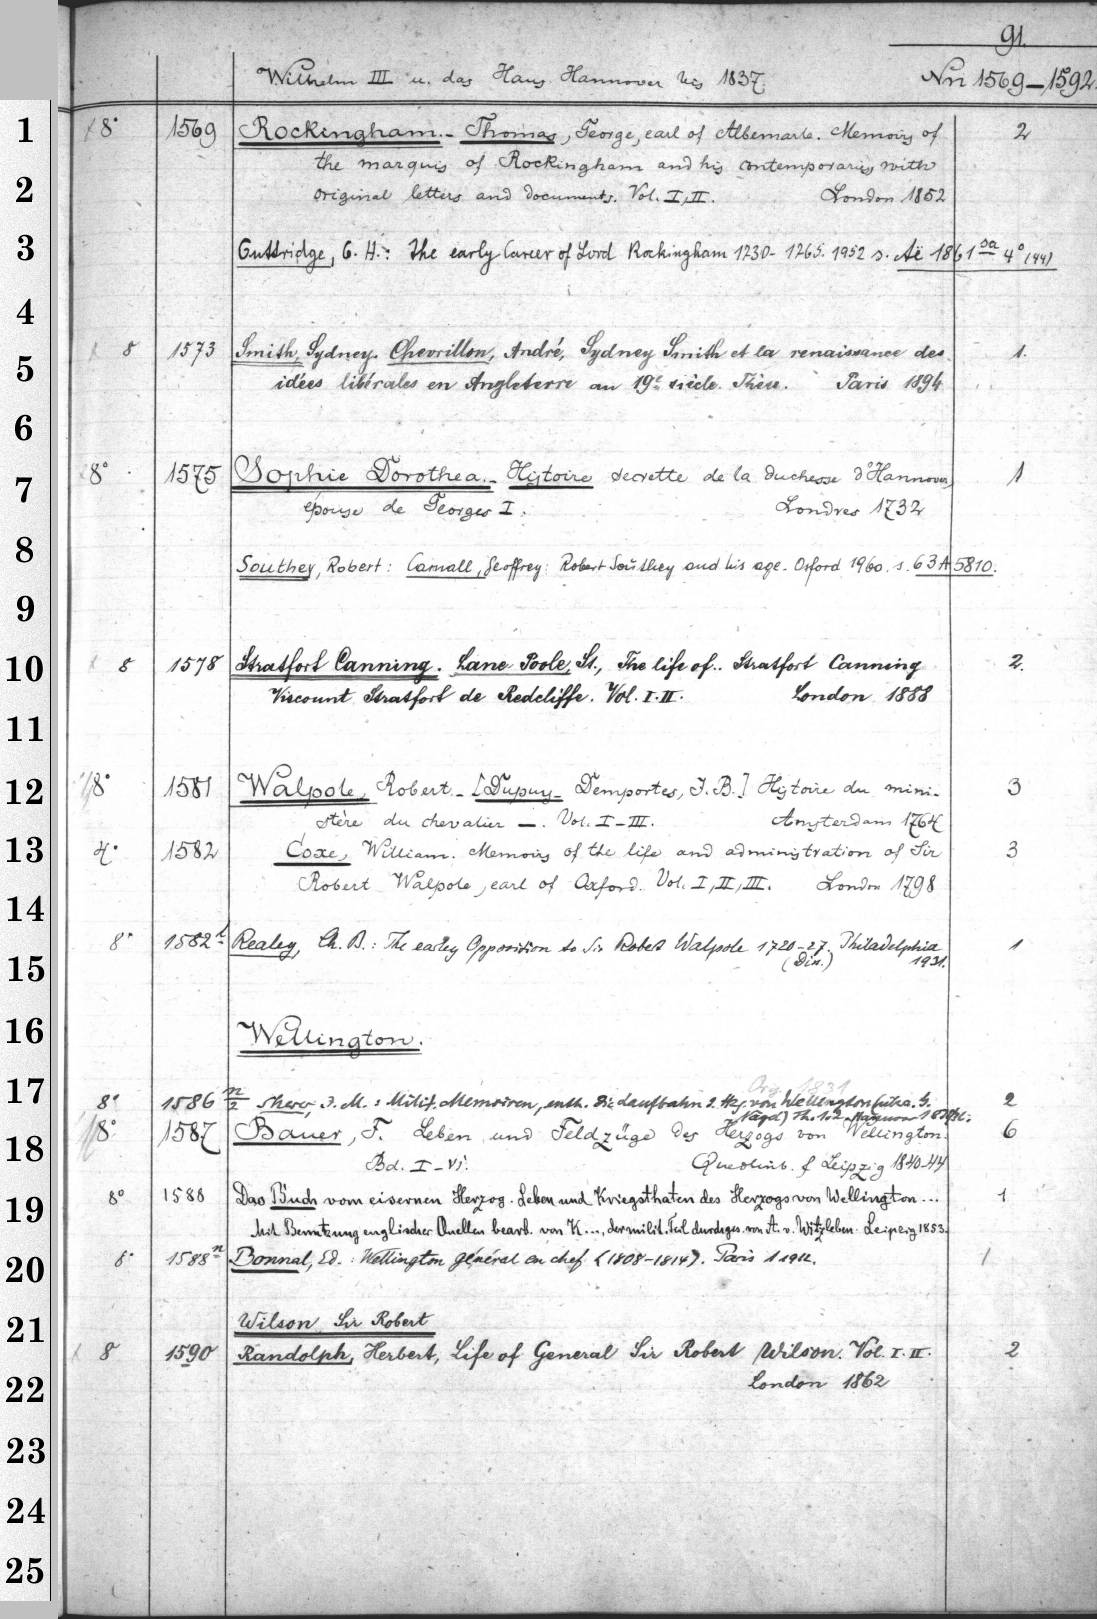 91.
Wilhelm III u. das Haus Hannover bis 1837. Nrr 1569–1592.
1 8° 1569 Rockingham. – Thomas, George, earl of Albemarle. Memoirs of 2
the marquis of Rockingham and his contemporaries with
2 original letters and documents. Vol. I, II. London 1852
3 Guttridge, G. H.: The early Career of Lord Rockingham 1730–1765. 1952 s. Aë 1861 sa 4° (44)
4
5 8 1573 Smith, Sydney. Chevrillon, André, Sydney Smith et la renaissance des 1.
idées libérales en Angleterre au 19e siècle. Thèse. Paris 1894
6
7 8° 1575 Sophie Dorothea. – Histoire secrette de la duchesse d'Hannover, 1
épouse de Georges I. Londres 1732
8 Southey, Robert: Carnall, Geoffrey: Robert Southey and his age. Oxford 1960. s. 63 A 5810.
9
10 8 1578 Stratfort Canning. Lane Poole, St., The life of.. Stratfort Canning 2.
Viscount Stratfort de Redcliffe. Vol. I. II. London 1888
11
12 8° 1581 Walpole, Robert. – [Dupuy-Demportes, J. B.] Histoire du mini- 3
stère du chevalier —. Vol. I–III. Amsterdam 1764
13 4° 1582 Coxe, William. Memoirs of the life and administration of Sir 3
Robert Walpole, earl of Oxford. Vol. I, II, III. London 1798
14
8° 1582 Realey, Ch. B.: The earley Opposition to Sir Robert Walpole 1720–27. Philadelphia 1
15 (Diss.) 1931.
16 Wellington.
17 Org. 1831
8° 1586 n/2 Sherer, J. M.: Milit. Memoiren, enth. die Laufbahn d. Hzg. von Wellington 2
Th. 1. 2
18 8° 1587 Bauer, F. Leben und Feldzüge des Herzogs von Wellington. 6
Bd. I–VI. Quedlinb. & Leipzig 1840–44
19 8° 1588 Das Buch vom eisernen Herzog. Leben und Kriegsthaten des Herzogs von Wellington... 1
Mit Benutzung englischer Quellen bearb. von K..., der milit. Teil durchges. von A. v. Witzleben. Leipzig 1853.
20 8° 1588 n Bonnal, Ed.: Wellington général en chef (1808–1814). Paris 1912. 1
21 Wilson Sir Robert
8 1590 Randolph, Herbert, Life of General Sir Robert Wilson. Vol. I. II. 2
22 London 1862
23
24
25